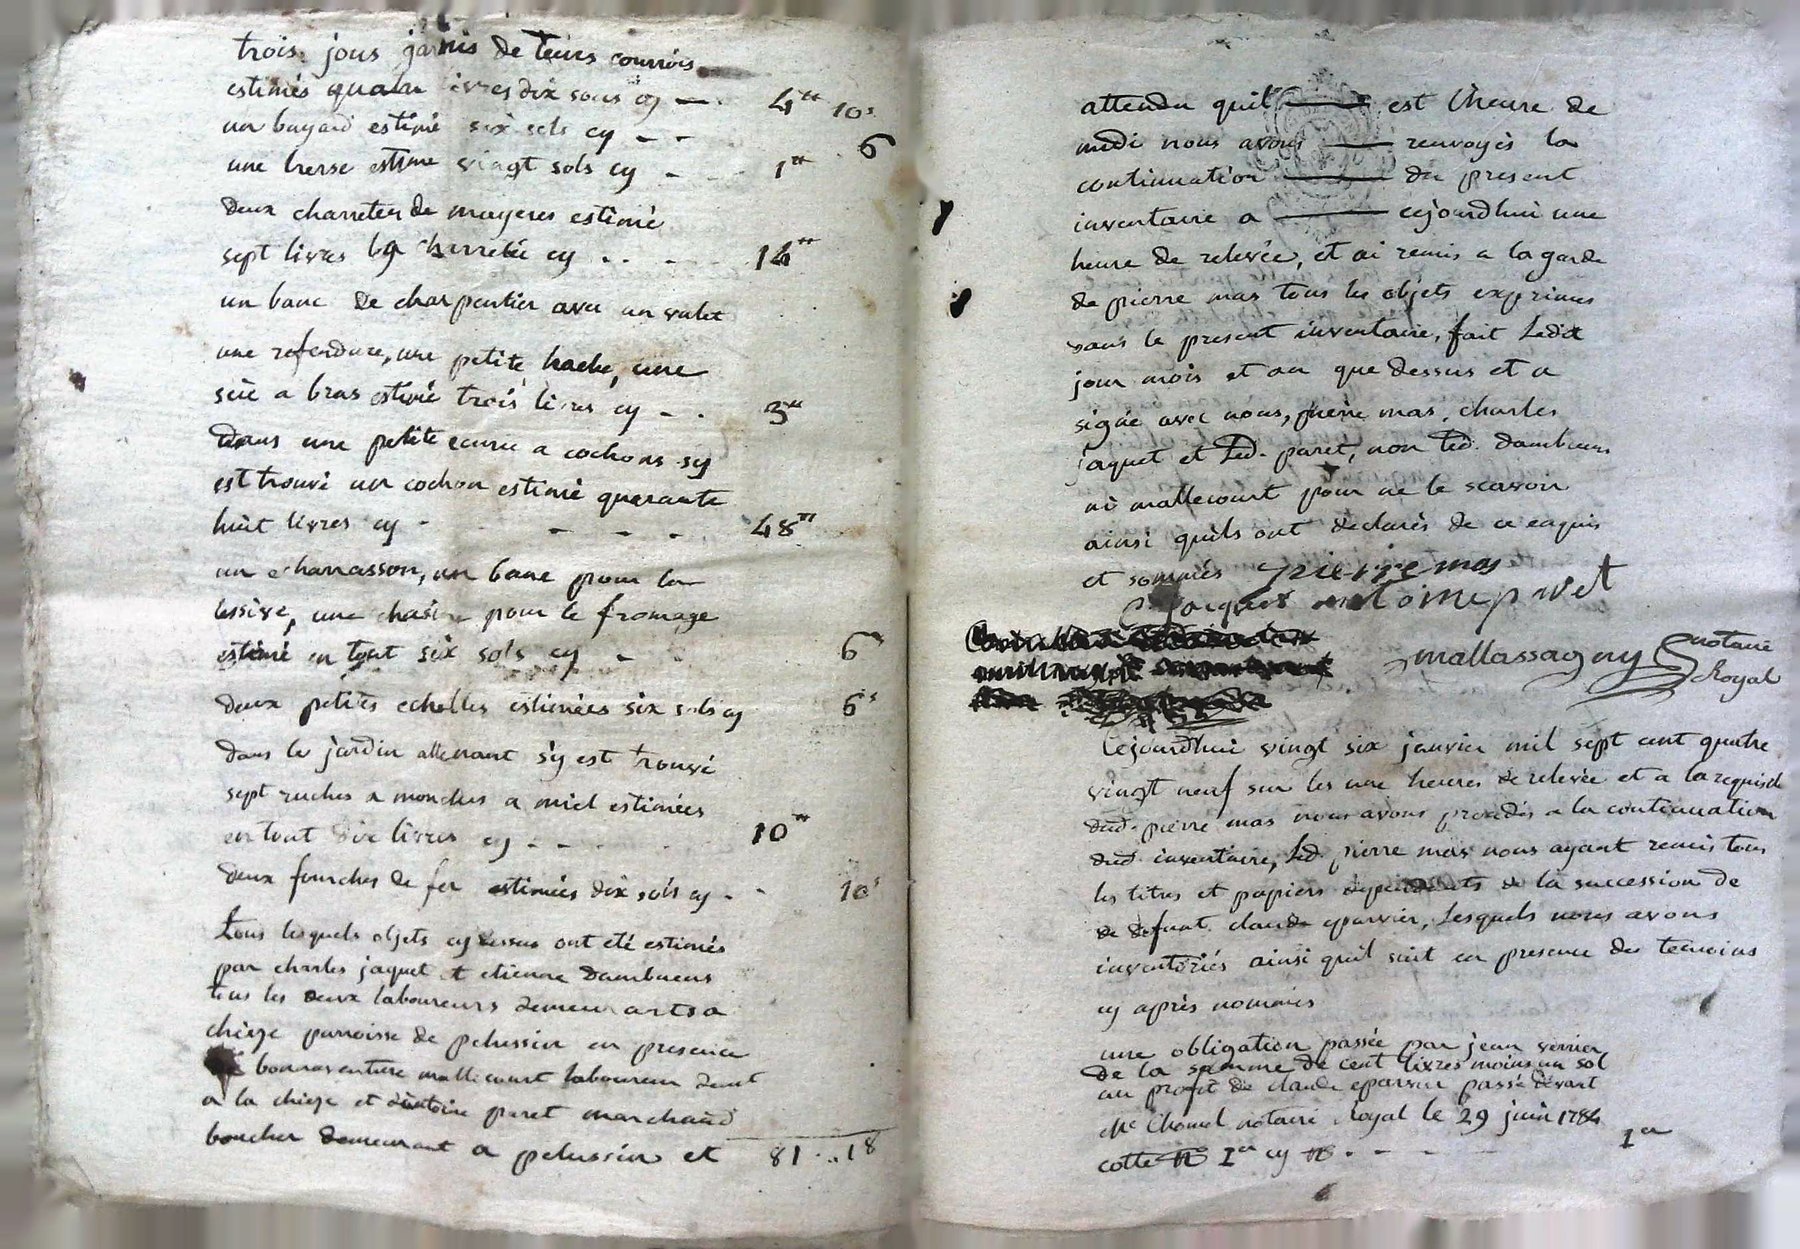 trois jous garnis de leurs courrois
estimés quatre livres dix sous cy — 4ᵗᵗ 10ˢ
un bayard estimé six sols cy — — 6
une herse estimé vingt sols cy — 1ᵗᵗ
deux charretés de mayeres estimé
sept livres la charretée cy . . — 14ᵗᵗ
un banc de charpentier avec un valet
une refendure, une petite hache, une
scie a bras estimé trois livres cy — . 3ᵗᵗ
dans une petite ecurie a cochons sy
est trouvé un cochon estimé quarante
huit livres cy - - - - 48ᵗᵗ
un echarrasson, un banc pour la
lessive, une chasire pour le fromage
estimé en tout six sols cy — - 6
deux petites echelles estimées six sols cy 6ˢ
dans le jardin attenant s'y est trouvé
sept ruches a mouches a miel estimées
en tout dix livres cy - - 10ᵗᵗ
deux fourches de fer estimées dix sols cy - - 10ˢ
tous lesquels objets cy dessus ont eté estimés
par charles jaquet et etienne dambuens
tous les deux laboureurs demeurants a
chieze parroisse de pelussin en presence
bonnaventure mallecourt laboureur demt
a la chieze et antoine paret marchand
boucher demeurant a pelussin et 81 .. 18
attendu quil est l'heure de
midi nous avons renvoyés la
continuation du present
inventaire a cejourdhui une
heure de relevée, et ai remis a la garde
de pierre mas tous les objets exprimes
dans le present inventaire, fait ledit
jour mois et an que dessus et a
signé avec nous, pierre mas, charles
jaquet et led. paret, non led. dambuens
ni mallecourt pour ne le scavoir
ainsi quils ont declarés de ce enquis
et sommés pierre mas
jacques antoine paret
mallassagny notaire
Royal
Cejourdhui vingt six janvier mil sept cent quatre
vingt neuf sur les une heures de relevée et a la requis de
dud. pierre mas nous avons procedés a la continuation
dud. inventaire, led. pierre mas nous ayant remis tous
les titres et papiers dependants de la succession de
de defunt claude eparvier, lesquels nous avons
inventoriés ainsi quil suit en presence des temoins
cy après nommés
une obligation passée par jean verrier
de la somme de cent livres moins un sol
au profit de claude eparvier passé devant
Me Chomel notaire Royal le 29 juin 1784
cotte 1er cy . - - - 1er